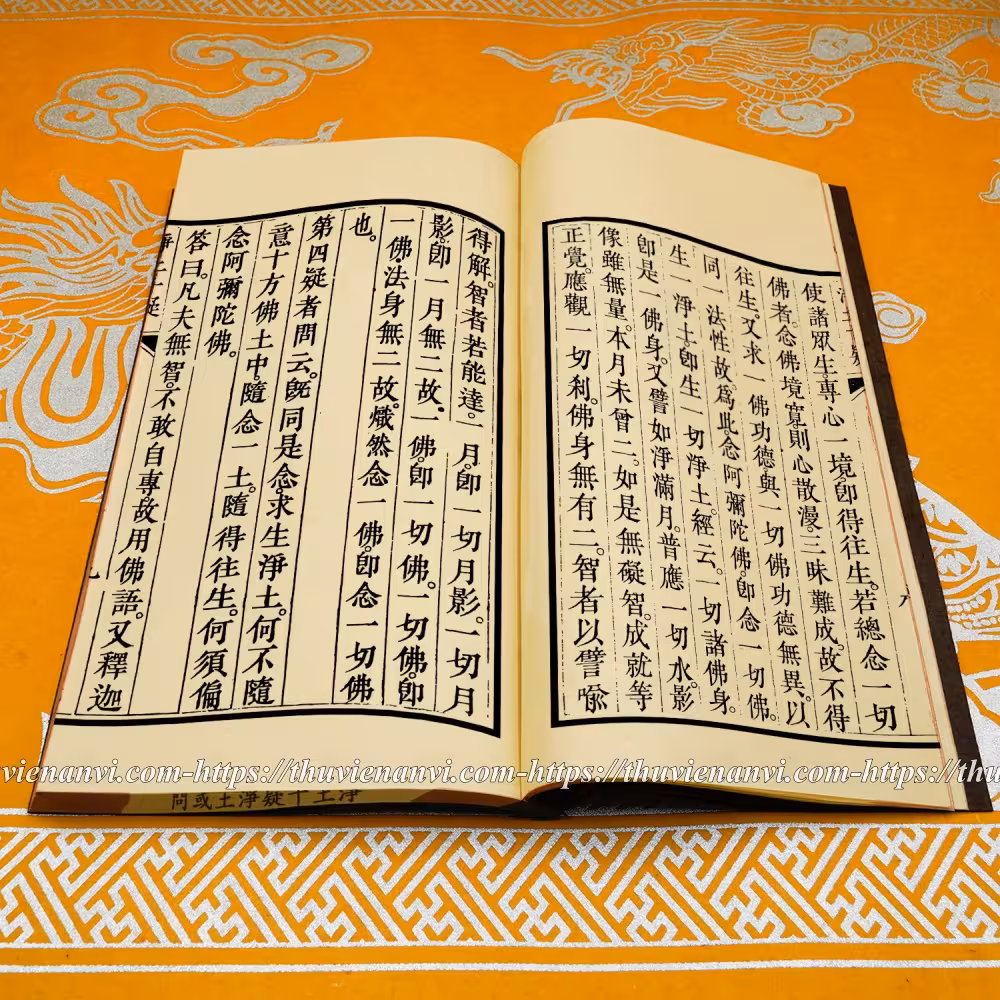 使諸眾生。專心一境。卽得往生。若總念一切
佛者。念佛境寬。則心散漫。三昧難成。故不得
往生。又求一佛功德。與一切佛功德無異。以
同一法性故。爲此念阿彌陀佛。卽念一切佛。
生一淨土。卽生一切淨土。經云。一切諸佛身。
卽是一佛身。又譬如淨滿月。普應一切水。影
像雖無量。本月未曾二。如是無礙智。成就等
正覺。應觀一切刹。佛身無有二。智者以譬喻
得解。智者若能達。一月。卽一切月影。一切月
影。卽一月無二故。一佛。卽一切佛。一切佛。卽
一佛。法身無二故。熾然念一佛。卽念一切佛
也。
第四疑者問云。旣同是念。求生淨土。何不隨
意十方佛土中。隨念一土。隨得往生。何須偏
念阿彌陀佛。
答曰。凡夫無智。不敢自專。故用佛語。又釋迦
淨土十疑淨土或問
vienanvi.com-https://thuvienanvi.com-https://thuvienanvi.com-https://thu